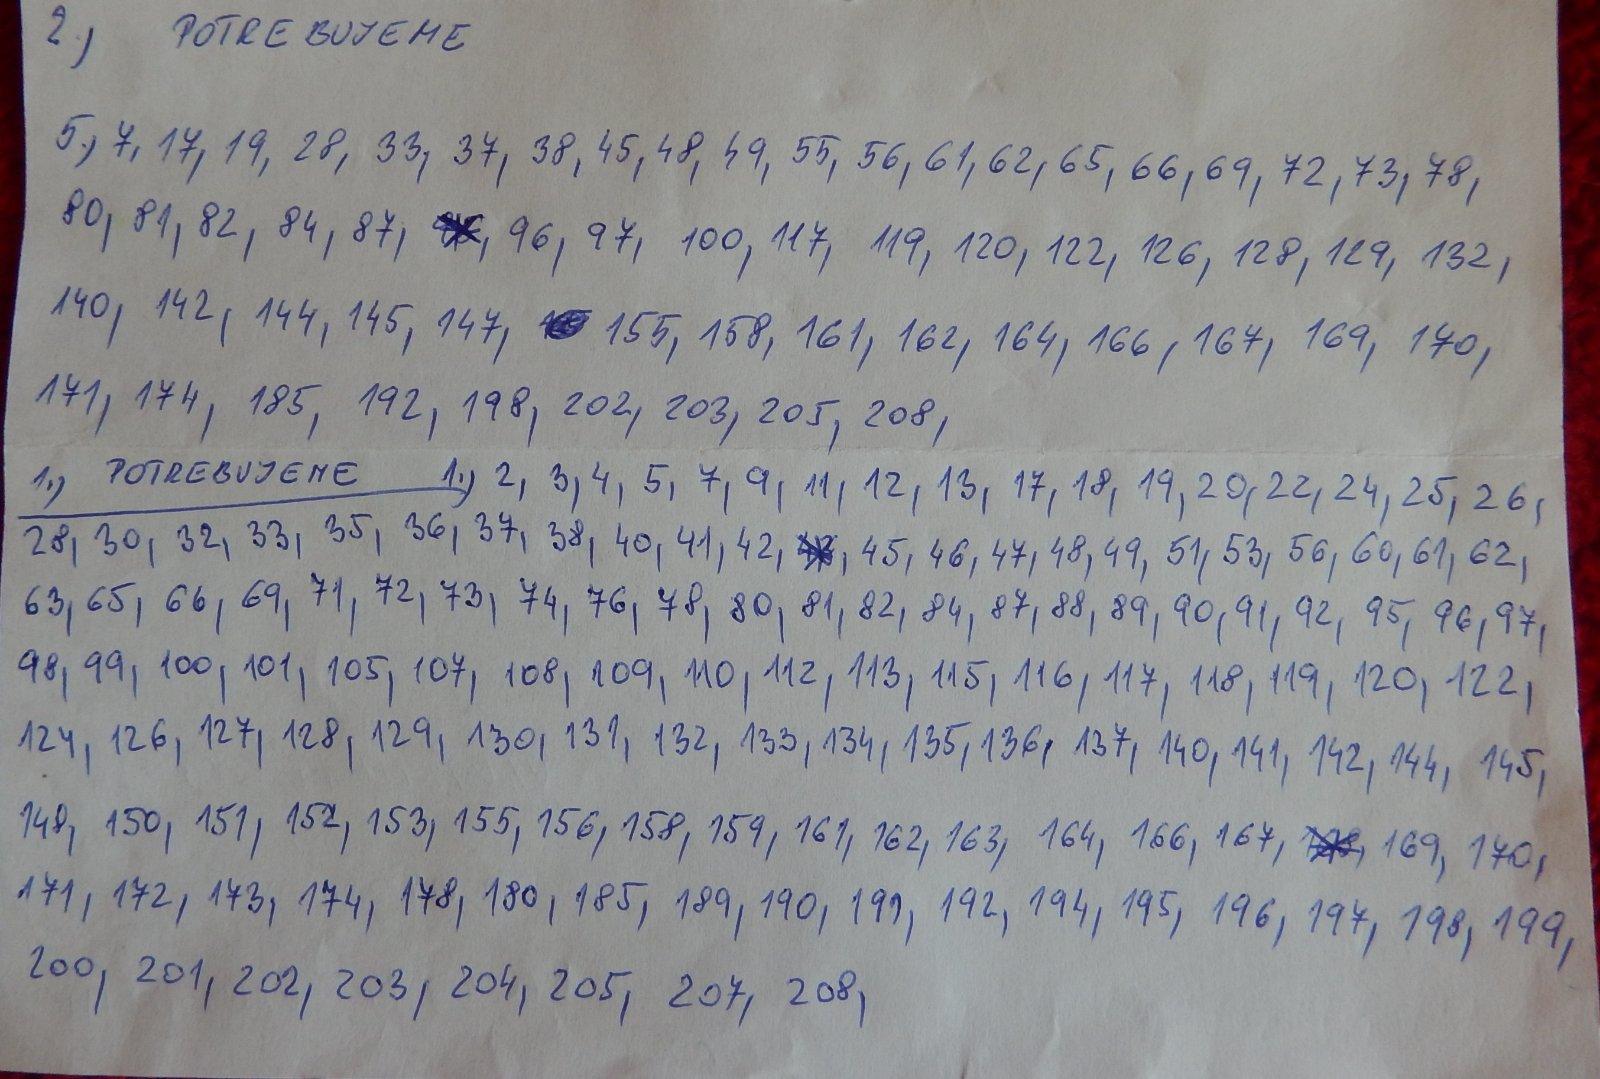 2.) POTREBUJEME
5., 7, 17, 19, 28, 33, 37, 38, 45, 48, 49, 55, 56, 61, 62, 65, 66, 69, 72, 73, 78,
80, 81, 82, 84, 87, 96, 97, 100, 117, 119, 120, 122, 126, 128, 129, 132,
140, 142, 144, 145, 147, 155, 158, 161, 162, 164, 166, 167, 169, 170,
171, 174, 185, 192, 198, 202, 203, 205, 208,
1.) POTREBUJEME 1.) 2, 3, 4, 5, 7, 9, 11, 12, 13, 17, 18, 19, 20, 22, 24, 25, 26,
28, 30, 32, 33, 35, 36, 37, 38, 40, 41, 42, 45, 46, 47, 48, 49, 51, 53, 56, 60, 61, 62,
63, 65, 66, 69, 71, 72, 73, 74, 76, 78, 80, 81, 82, 84, 87, 88, 89, 90, 91, 92, 95, 96, 97,
98, 99, 100, 101, 105, 107, 108, 109, 110, 112, 113, 115, 116, 117, 118, 119, 120, 122,
124, 126, 127, 128, 129, 130, 131, 132, 133, 134, 135, 136, 137, 140, 141, 142, 144, 145,
148, 150, 151, 152, 153, 155, 156, 158, 159, 161, 162, 163, 164, 166, 167, 169, 170,
171, 172, 173, 174, 178, 180, 185, 189, 190, 191, 192, 194, 195, 196, 197, 198, 199,
200, 201, 202, 203, 204, 205, 207, 208,